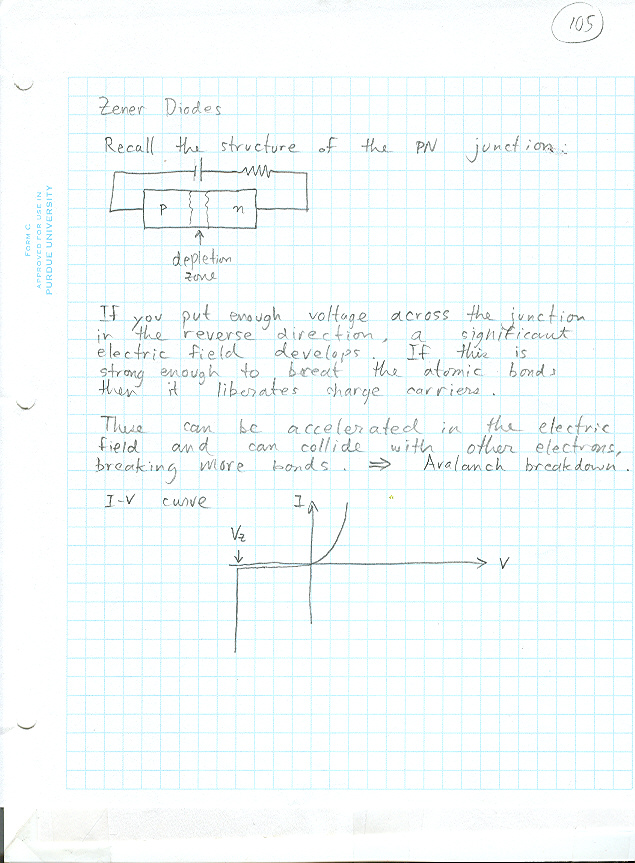 105
Zener Diodes
Recall the structure of the PN junction:
P n
depletion
zone
If you put enough voltage across the junction
in the reverse direction, a significant
electric field develops. If this is
strong enough to breat the atomic bonds
then it liberates charge carriers.
These can be accelerated in the electric
field and can collide with other electrons,
breaking more bonds. ⇒ Avalanch breakdown.
I-V curve
I
Vz
V
FORM G
APPROVED FOR USE IN
PURDUE UNIVERSITY